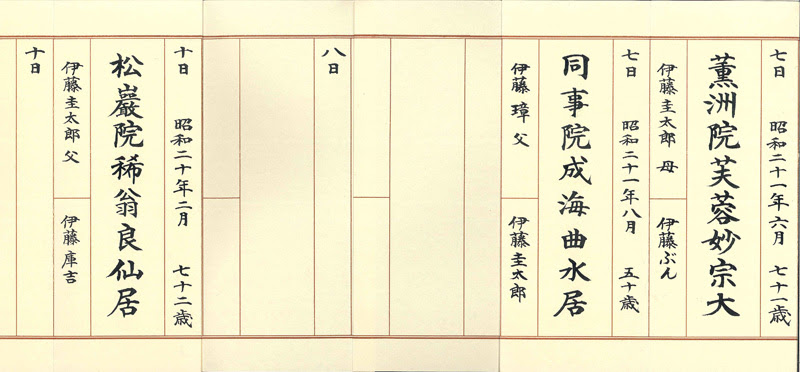 七日 昭和二十一年六月 七十一歳
薫洲院芙蓉妙宗大
伊藤圭太郎 母 伊藤ぶん
七日 昭和二十一年八月 五十歳
同事院成海曲水居
伊藤 璋 父 伊藤圭太郎
八日
十日 昭和二十年二月 七十二歳
松巖院稀翁良仙居
伊藤圭太郎 父 伊藤庫吉
十日